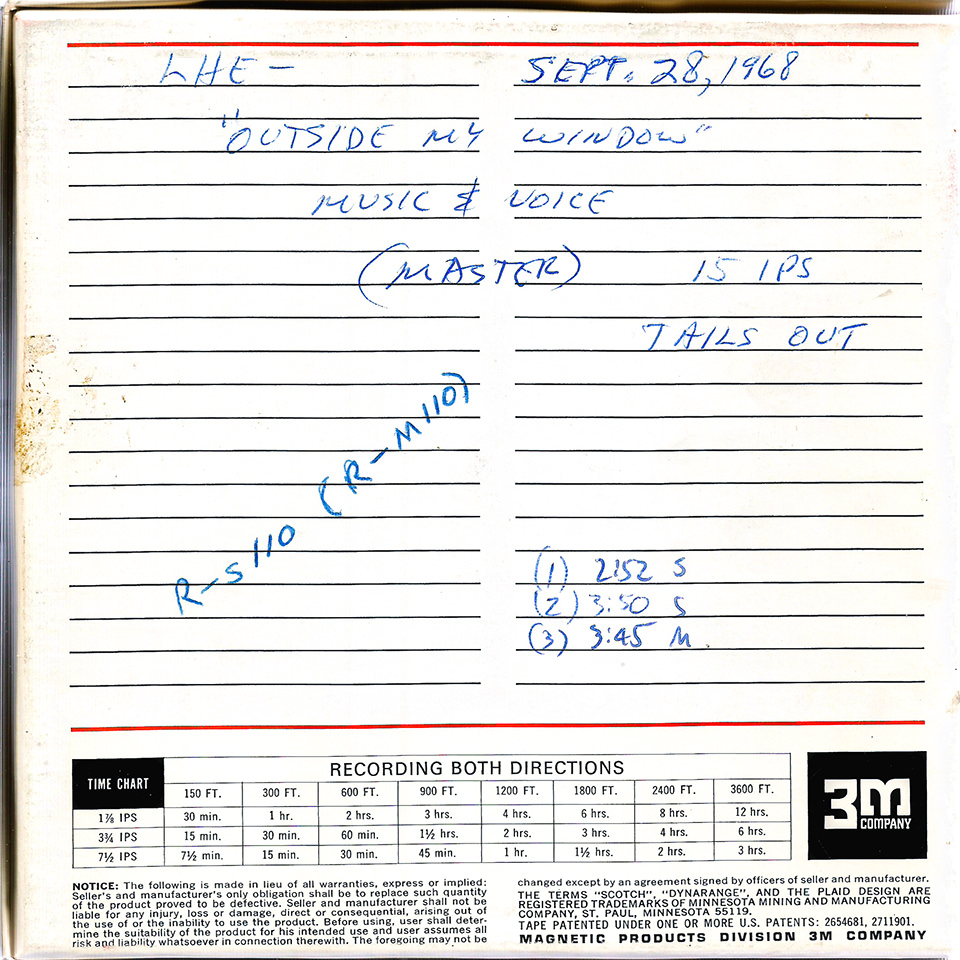 LHE — SEPT. 28, 1968
"OUTSIDE MY WINDOW"
MUSIC & VOICE
(MASTER) 15 IPS
TAILS OUT
R-S110 (R-M110)
(1) 2:52 S
(2) 3:50 S
(3) 3:45 M.
TIME CHART
RECORDING BOTH DIRECTIONS
150 FT. 300 FT. 600 FT. 900 FT. 1200 FT. 1800 FT. 2400 FT. 3600 FT.
1⅞ IPS 30 min. 1 hr. 2 hrs. 3 hrs. 4 hrs. 6 hrs. 8 hrs. 12 hrs.
3¾ IPS 15 min. 30 min. 60 min. 1½ hrs. 2 hrs. 3 hrs. 4 hrs. 6 hrs.
7½ IPS 7½ min. 15 min. 30 min. 45 min. 1 hr. 1½ hrs. 2 hrs. 3 hrs.
3M
COMPANY
NOTICE: The following is made in lieu of all warranties, express or implied:
Seller's and manufacturer's only obligation shall be to replace such quantity
of the product proved to be defective. Seller and manufacturer shall not be
liable for any injury, loss or damage, direct or consequential, arising out of
the use of or the inability to use the product. Before using, user shall deter-
mine the suitability of the product for his intended use and user assumes all
risk and liability whatsoever in connection therewith. The foregoing may not be
changed except by an agreement signed by officers of seller and manufacturer.
THE TERMS "SCOTCH", "DYNARANGE", AND THE PLAID DESIGN ARE
REGISTERED TRADEMARKS OF MINNESOTA MINING AND MANUFACTURING
COMPANY, ST. PAUL, MINNESOTA 55119.
TAPE PATENTED UNDER ONE OR MORE U.S. PATENTS: 2654681, 2711901.
MAGNETIC PRODUCTS DIVISION 3M COMPANY